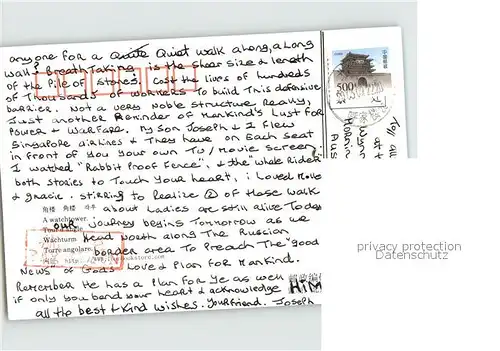 anyone for a Quite Quiet walk along, a Long
Wall? Breath Taking is the sheer size & length
of the Pile of stones. Cost the lives of hundreds
of Thousands of workers To build This defensive
barrier. Not a very Noble structure Really,
Just another Reminder of Mankind's Lust for
Power & Warfare. my son Joseph & I flew
Singapore airlines & They have on Each seat
in front of you your own TV/movie screen.
I watched "Rabbit Proof Fence", & the "whale Rider"
both stories to Touch your heart, i loved Movie
& gracie. stirring to Realize 2 of those walk
about Ladies are still alive Today
角楼
A watchtower.
Our journey begins Tomorrow as we
Tour d'angle.
Wachturm
Head North along The Russian
Torre angolare.
border area To Preach The "good
News of Gods Love & Plan for Mankind.
Remember He has a Plan for Ye as well
if only you bend your heart & acknowledge HiM
all the best & Kind wishes. Your friend. Joseph
中国邮政
500
privacy protection
Datenschutz